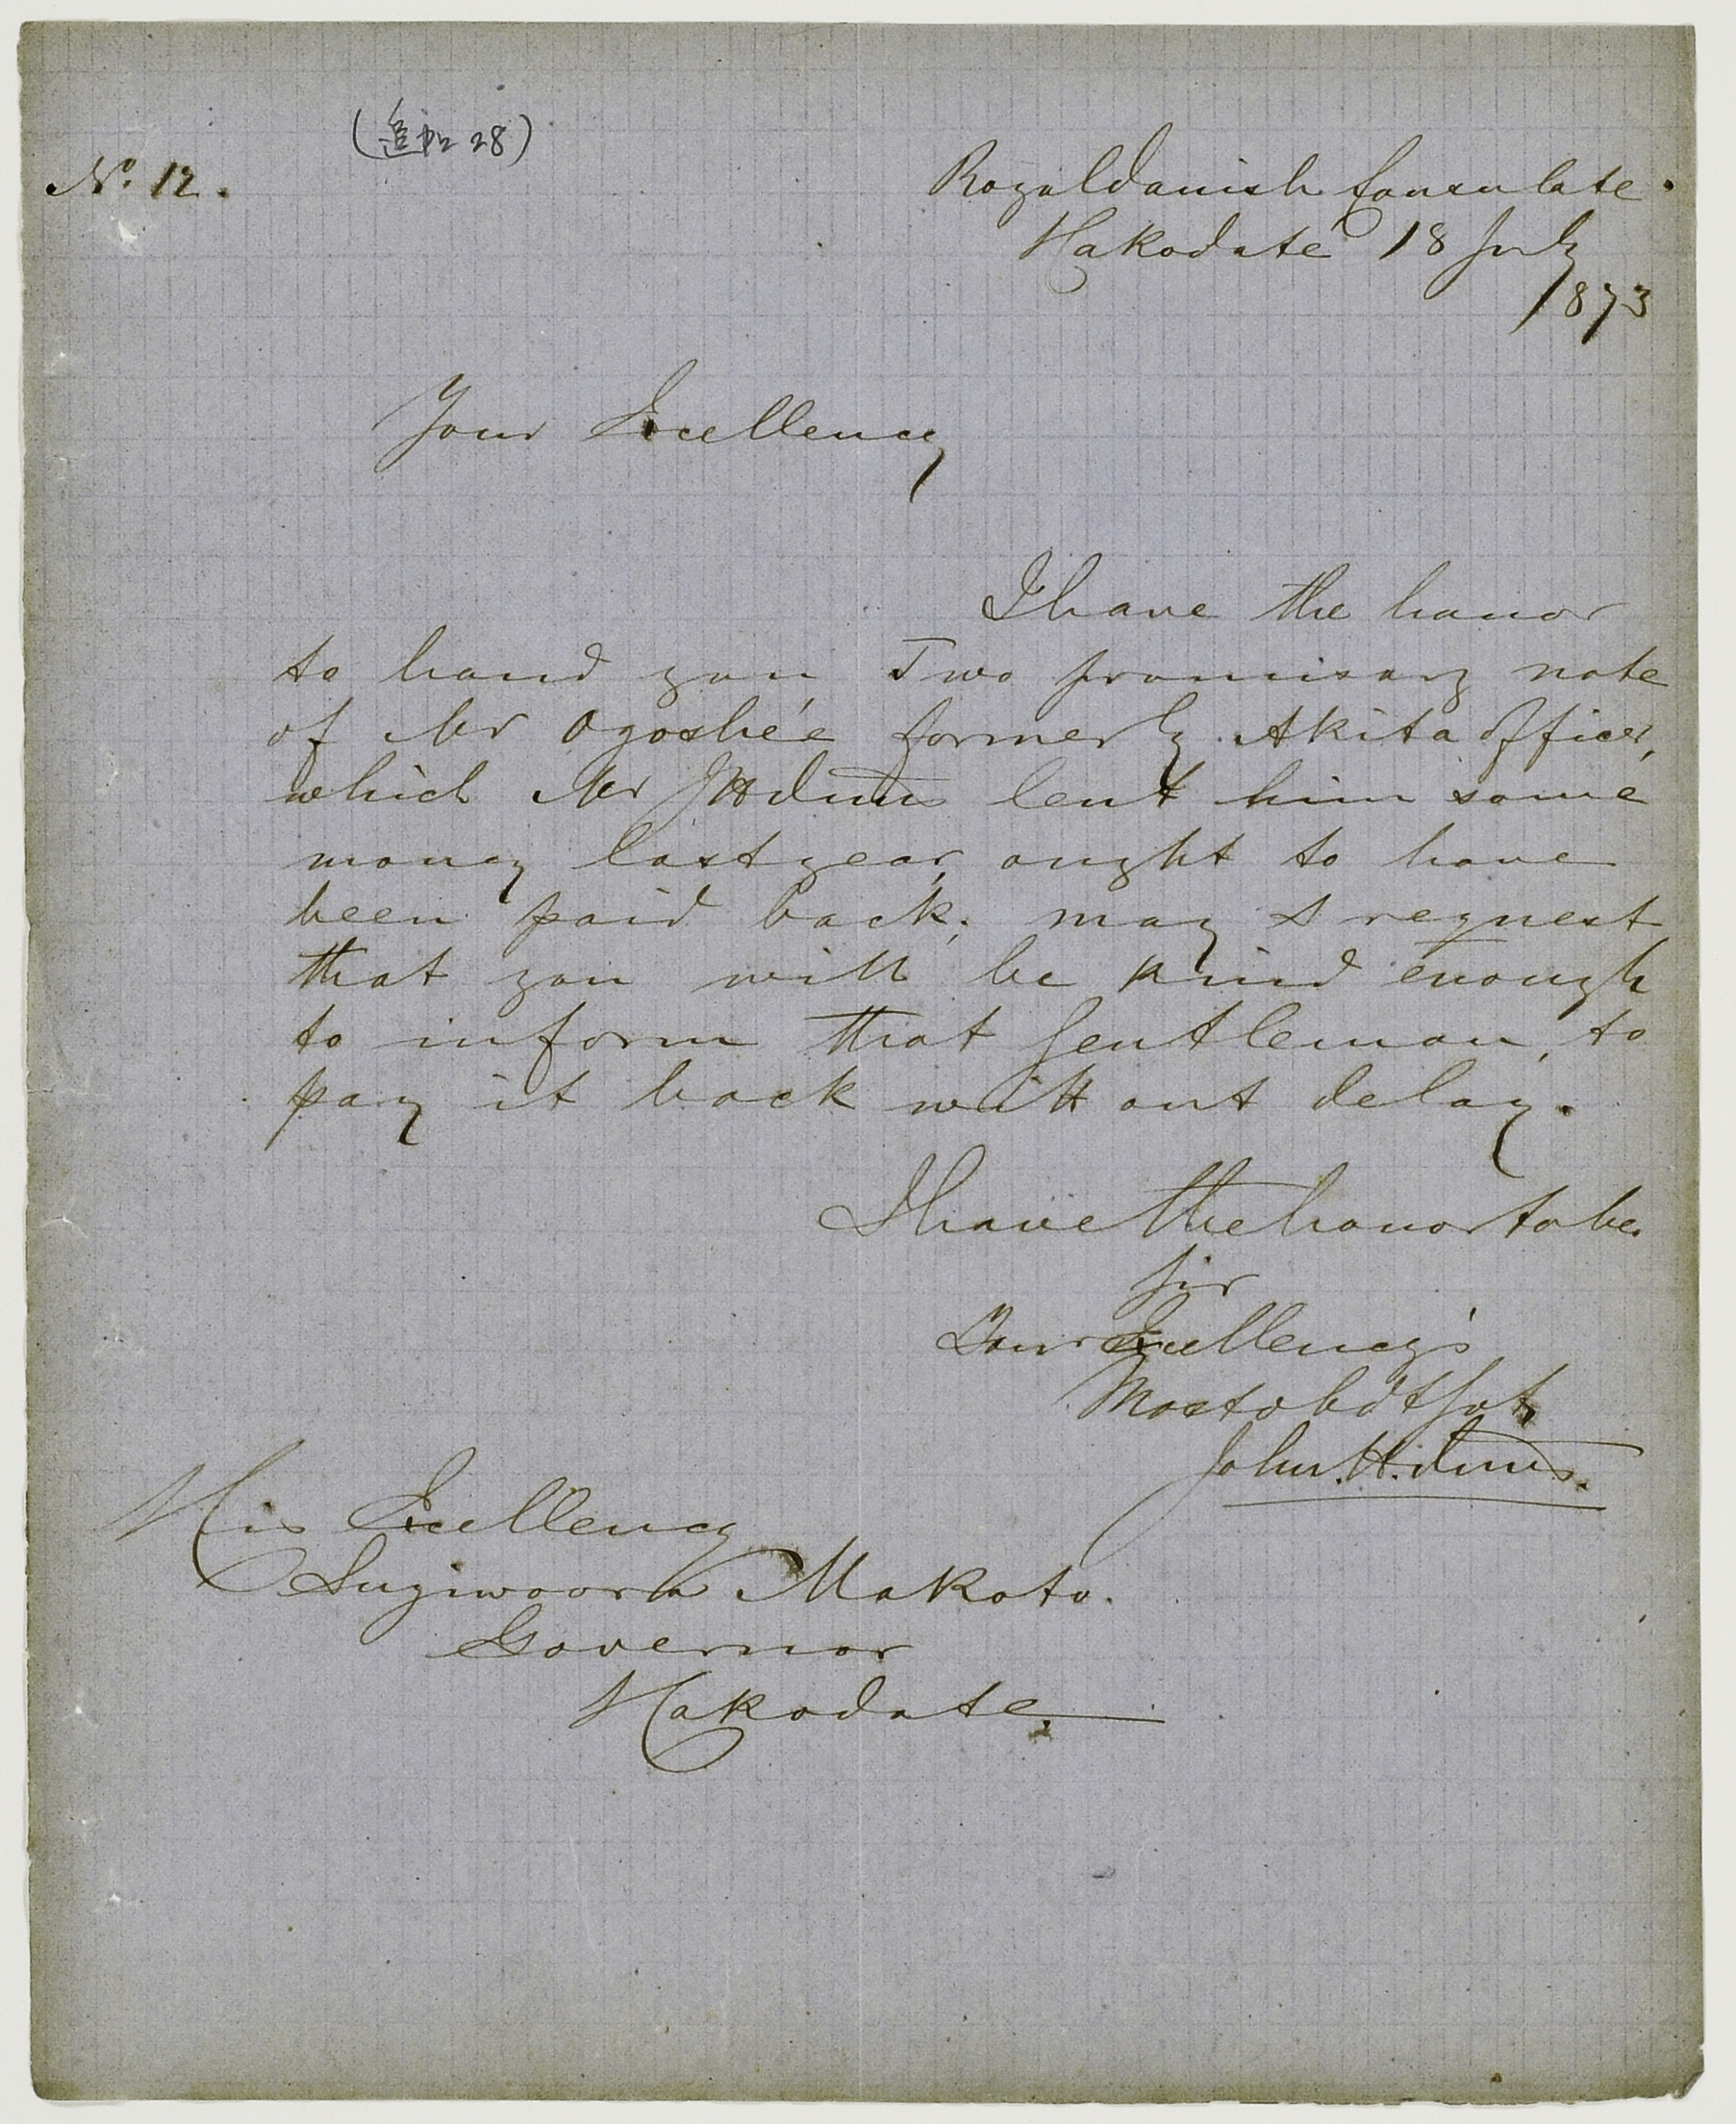 (追加 28)
No. 12.
Royal Danish Consulate.
Hakodate 18 July
1873
Your Excellency
I have the honor
to hand you, Two promisary note
of Mr Ogoshée formerly Akita officer,
which Mr JH Duus lent him some
money last year, ought to have
been paid back; may I request
that you will be kind enough
to inform that gentleman, to
pay it back without delay.
I have the honor to be.
Sir
Your Excellency's
Most obdt Svt,
John. H. Duus.
His Excellency
Sugiwoora Makoto.
Governor
Hakodate.